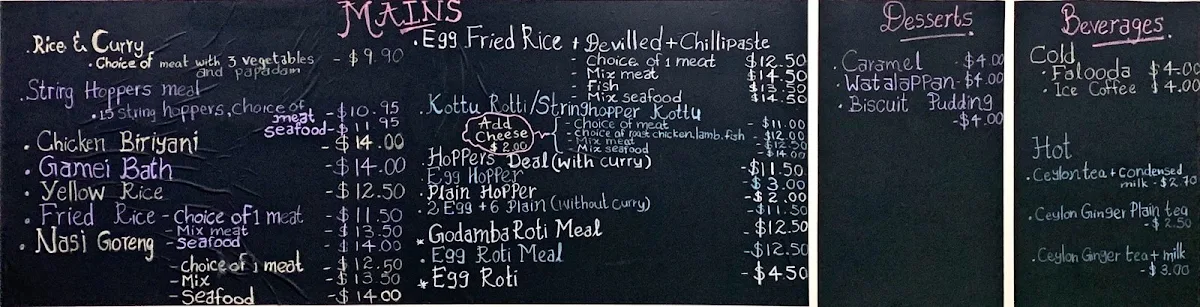 MAINS
.Rice & Curry
• Choice of meat with 3 vegetables - $9.90
and papadam
.String Hoppers meal
•15 string hoppers, choice of
meat -$10.95
seafood-$11.95
• Chicken Biriyani -$14.00
• Gamei Bath -$14.00
• Yellow Rice -$12.50
• Fried Rice - Choice of 1 meat -$11.50
- Mix meat -$13.50
- Seafood -$14.00
• Nasi Goreng
- Choice of 1 meat -$12.50
- Mix -$13.50
- Seafood -$14.00
• Egg Fried Rice + Devilled + Chillipaste
- Choice of 1 meat $12.50
- Mix meat $14.50
- Fish $13.50
- Mix seafood $14.50
. Kottu Rotti/Stringhopper Kottu
Add
Cheese
$2.00
- Choice of meat -$11.00
- choice of roast chicken, lamb, fish -$12.00
- Mix meat -$12.50
- Mix seafood -$14.00
. Hoppers Deal (with curry) -$11.50
. Egg Hopper $3.00
. Plain Hopper -$2.00
. 2 Egg + 6 Plain (without curry) -$11.50
* Godamba Roti Meal -$12.50
. Egg Roti Meal -$12.50
* Egg Roti -$4.50
Desserts
. Caramel -$4.00
. Watalappan -$4.00
• Biscuit Pudding
-$4.00
Beverages
Cold
• Falooda $4.00
• Ice Coffee $4.00
Hot
. Ceylon tea + condensed
milk -$2.70
. Ceylon Ginger Plain tea
-$2.50
. Ceylon Ginger tea + milk
-$3.00